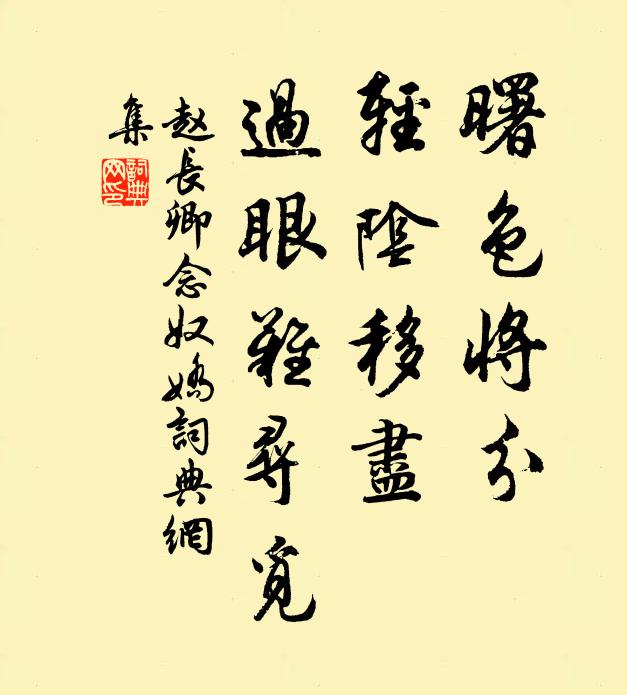 曙色将分
輕陰移盡
過眼難尋覓
赵長卿念奴嬌詞典網
集
詞典
网印